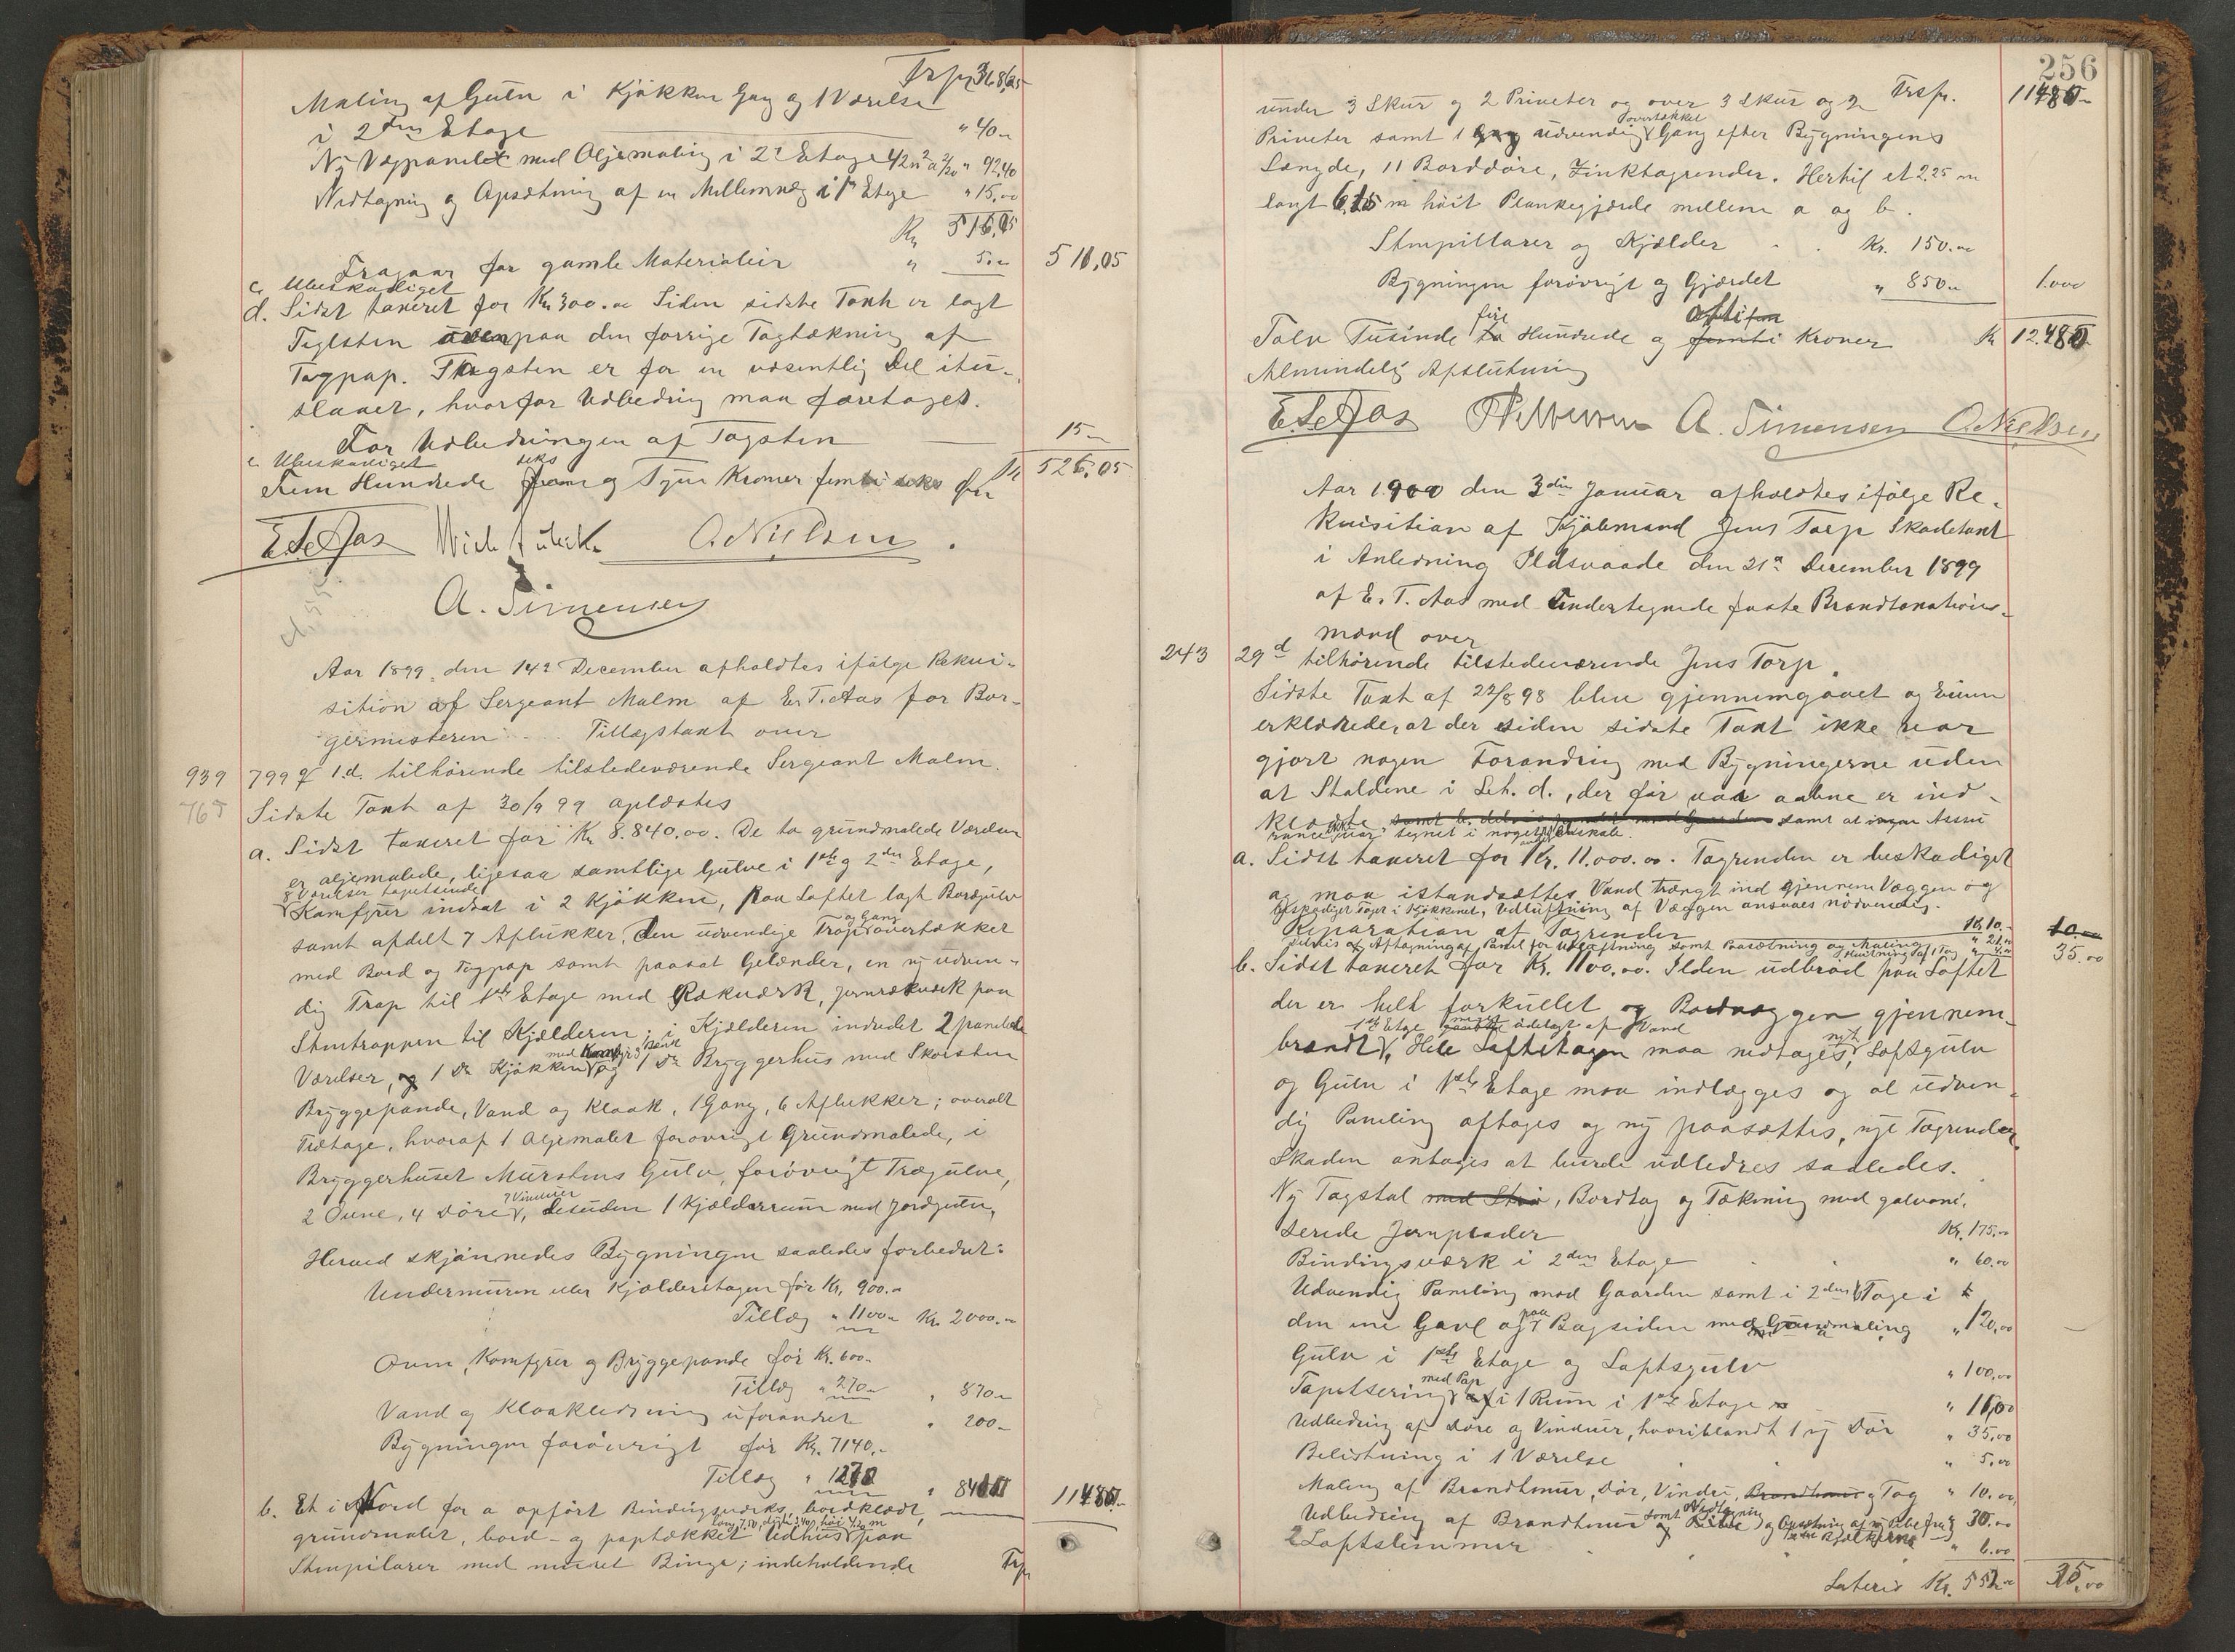 Trsp. 368,65
Maling af Gulv i Kjøkken Gang og 1 Værelse
i 2den Etage " 40.-
Ny Vægpanelet med Oljemaling i 2' Etage 42 m² a 2/20 " 92,40
Nedtagning og Opsætning af en Mellemvæg i 1ste Etage " 15,00
Kr. 516,05
Fragaar for gamle Materialier " 5.- 511,05
c. Ubeskadiget
d. Sidst taxeret for Kr. 300.00 Siden sidste Taxt er lagt
Taglsten ovenpaa den forrige Tagtækning af
Tagpap. Tagsten er for en væsentlig Del itu-
slaaet, hvorfor Udbedring maa foretages.
For Udbedringen af Tagsten 15.-
e. Ubeskadiget
Fem Hundrede seks og Tyve Kroner fem Øre Kr 526,05
E.T. Aas O. Nielsen.
A. Simensen
Aar 1899, den 14de December afholdtes ifølge Rekvi-
sition af Sergeant Malm af E. T. Aas for Bor-
germesteren Tillægstaxt over
939 799 q 1.d. tilhørende tilstedeværende Sergeant Malm.
765 Sidste Taxt af 30/9 99 oplæstes
a. Sidst taxeret for Kr. 8.840.00. De to grundmalede Værelser
er oljemalede, ligesaa samtlige Gulve i 1ste og 2den Etage,
8 Værelser tapetserede
Komfyrer indsat i 2 Kjøkken, paa Loftet lagt Bordgulv
samt afdelt 7 Aflukker, Den udvendige Trap og Gang overtækket
med Bord og Tagpap samt paasat Gelænder, en ny udven-
dig Trap til 1ste Etage med Rækværk, Jernrækværk paa
Stentrappen til Kjælderen; i Kjælderen indredet 2 panelede
Værelser, 1 Do Kjøkken med Komfyr og 1 Do Bryggerhus med Skorsten
Bryggepande, Vand og Kloak, 1 Gang, 6 Aflukker; overalt
Trætage, hvoraf 1 Oljemalet forøvrigt Grundmalede, i
Bryggerhuset Murstens Gulv, forøvrigt Trægulve,
2 Ovne, 4 Døre, 7 Vinduer, desuden 1 Kjælderrum med Jordgulv,
Herved skjønnedes Bygningen saaledes forbedret:
Undermuren eller Kjælderetagen før Kr. 900.-
Tillæg " 1100.- Kr. 2000.-
Ovne, Komfyrer og Bryggepande før Kr. 600.-
Tillæg " 270.- " 870.-
Vand og Kloakledning uforandret " 200.-
Bygningen forøvrigt før Kr. 7140.-
Tillæg " 1270 " 8410
b. Et i Nord for a opført Bindingsværks, bordklædt, 11480.-
lang 7.50, dybt 3.40, høi 4.20 m
grundmalet, bord- og paptækket Udhus paa
Stenpilarer med muret Binge; indeholdende Trsp
256
Trsp. 11480.-
under 3 Skur og 2 Priveter og over 3 Skur og 2
Priveter samt 1 udvendig overtækket Gang efter Bygningens
Længde, 11 Borddøre, Zinktagrender. Hertil et 2.25 m
langt 6,15 m høit Plankegjærde mellem a og b.
Stenpillarer og Kjælder Kr. 150.00
Bygningen forøvrigt og Gjærdet " 850.- 1.000
Tolv Tusinde fire Hundrede og otti Kroner Kr 12.480
Almindelig Afslutning
E.T. Aas A. Simensen O. Nielsen
Aar 1900 den 3die Januar afholdtes ifølge Re-
kvisition af Kjøbmand Jens Torp Skadetaxt
i Anledning Ildsvaade den 21de December 1899
af E. T. Aas med Undertegnede faste Brandtaxations-
mænd over
243 29 d tilhørende tilstedeværende Jens Torp.
Sidste Taxt af 22/8 98 blev gjennemgaaet og Eieren
erklærede, at der siden sidste Taxt ikke var
gjort nogen Forandring med Bygningerne uden
at Staldene i Lit. d., der før var aabne er ind-
klædte, samt at ingen Assu
rance var tegnet i noget andet Selskab.
a. Sidst taxeret for Kr. 11.000.00. Tagrenden er beskadiget
og maa istandsættes, Vand trængt ind gjennem Væggen og
beskadiget Taget i Kjøkkenet, Udluftning af Væggen ansaaes nødvendig.
Reparation af Tagrender Kr. 10.- 10.-
delvis Aftagning af Panel for Udluftning samt Paasætning og Maling " 21.-
Hvitning af 1 Tag " 4.00 35.00
b. Sidst taxeret for Kr. 1100.00. Ilden udbrød paa Loftet
der er helt forkullet og Bordvæggen gjennem-
1ste Etage meget ødelagt af Vand
brændt, Hele Loftetagen maa nedtages, nyt Loftgulv
og Gulv i 1ste Etage maa indlægges og al udven-
dig Paneling aftages og ny paasættes, nye Tagrender,
Skaden antages at burde udbedres saaledes.
Ny Tagstol med , Bordtag og Tækning med galvani-
serede Jernplader Kr. 175,00
Bindingsværk i 2den Etage " 60.00
Udvendig Paneling mod Gaarden samt i 2den Etage i
den ene Gavl og paa Bagsiden med Grundmaling " 120,00
Gulv i 1ste Etage og Loftsgulv " 100,00
Tapetsering med Pap i 1 Rum i 1ste Etage " 11,00
Udbedring af Døre og Vinduer, hvoriblandt 1 ny Dør " 35,00
Belistning i 1 Værelse " 5,00
Maling af Brandmur, Dør, Vindu, Brandmur og Tag " 10.00
Udbedring af Brandmur samt Nedtagning og Opsætning af ny Pibe " 30.00
2 Loftslemmer " 6.00
Lateris Kr. 552.- 35,00